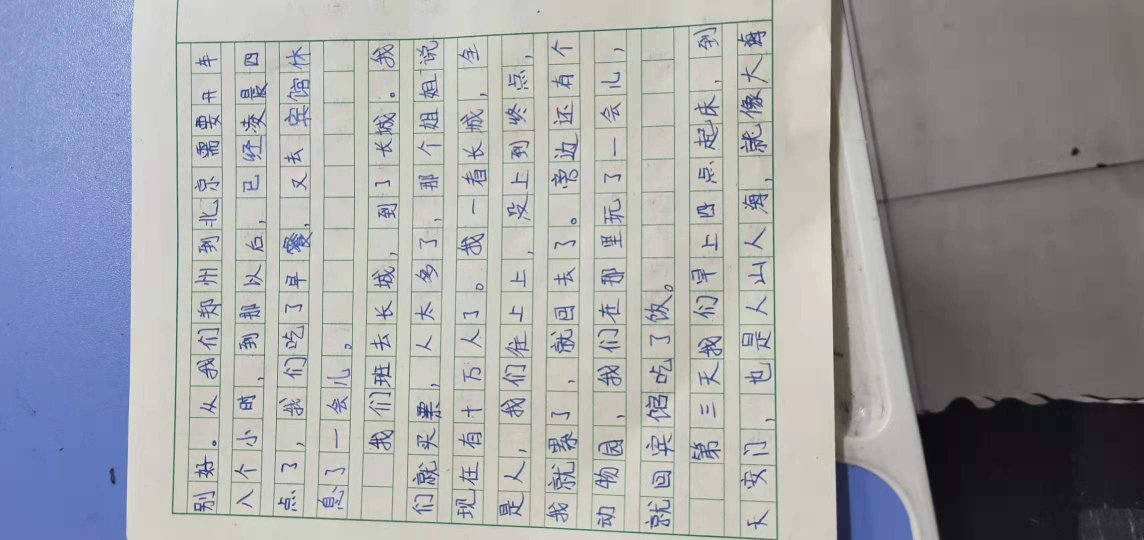 别好。从我们郑州到北京需要开车
八个小时，到那以后，已经凌晨四
点了，我们吃了早餐，又去宾馆休
息了一会儿。
我们班去长城，到了长城。我
们就买票，人太多了，那个姐姐说
现在有十万人了。我一看长城，全
是人，我们往上上，没上到终点，
我就累了，就回去了。旁边还有个
动物园，我们在那里玩了一会儿，
就回宾馆吃了饭。
第三天我们早上四点起床，到
天安门，也是人山人海，就像大海